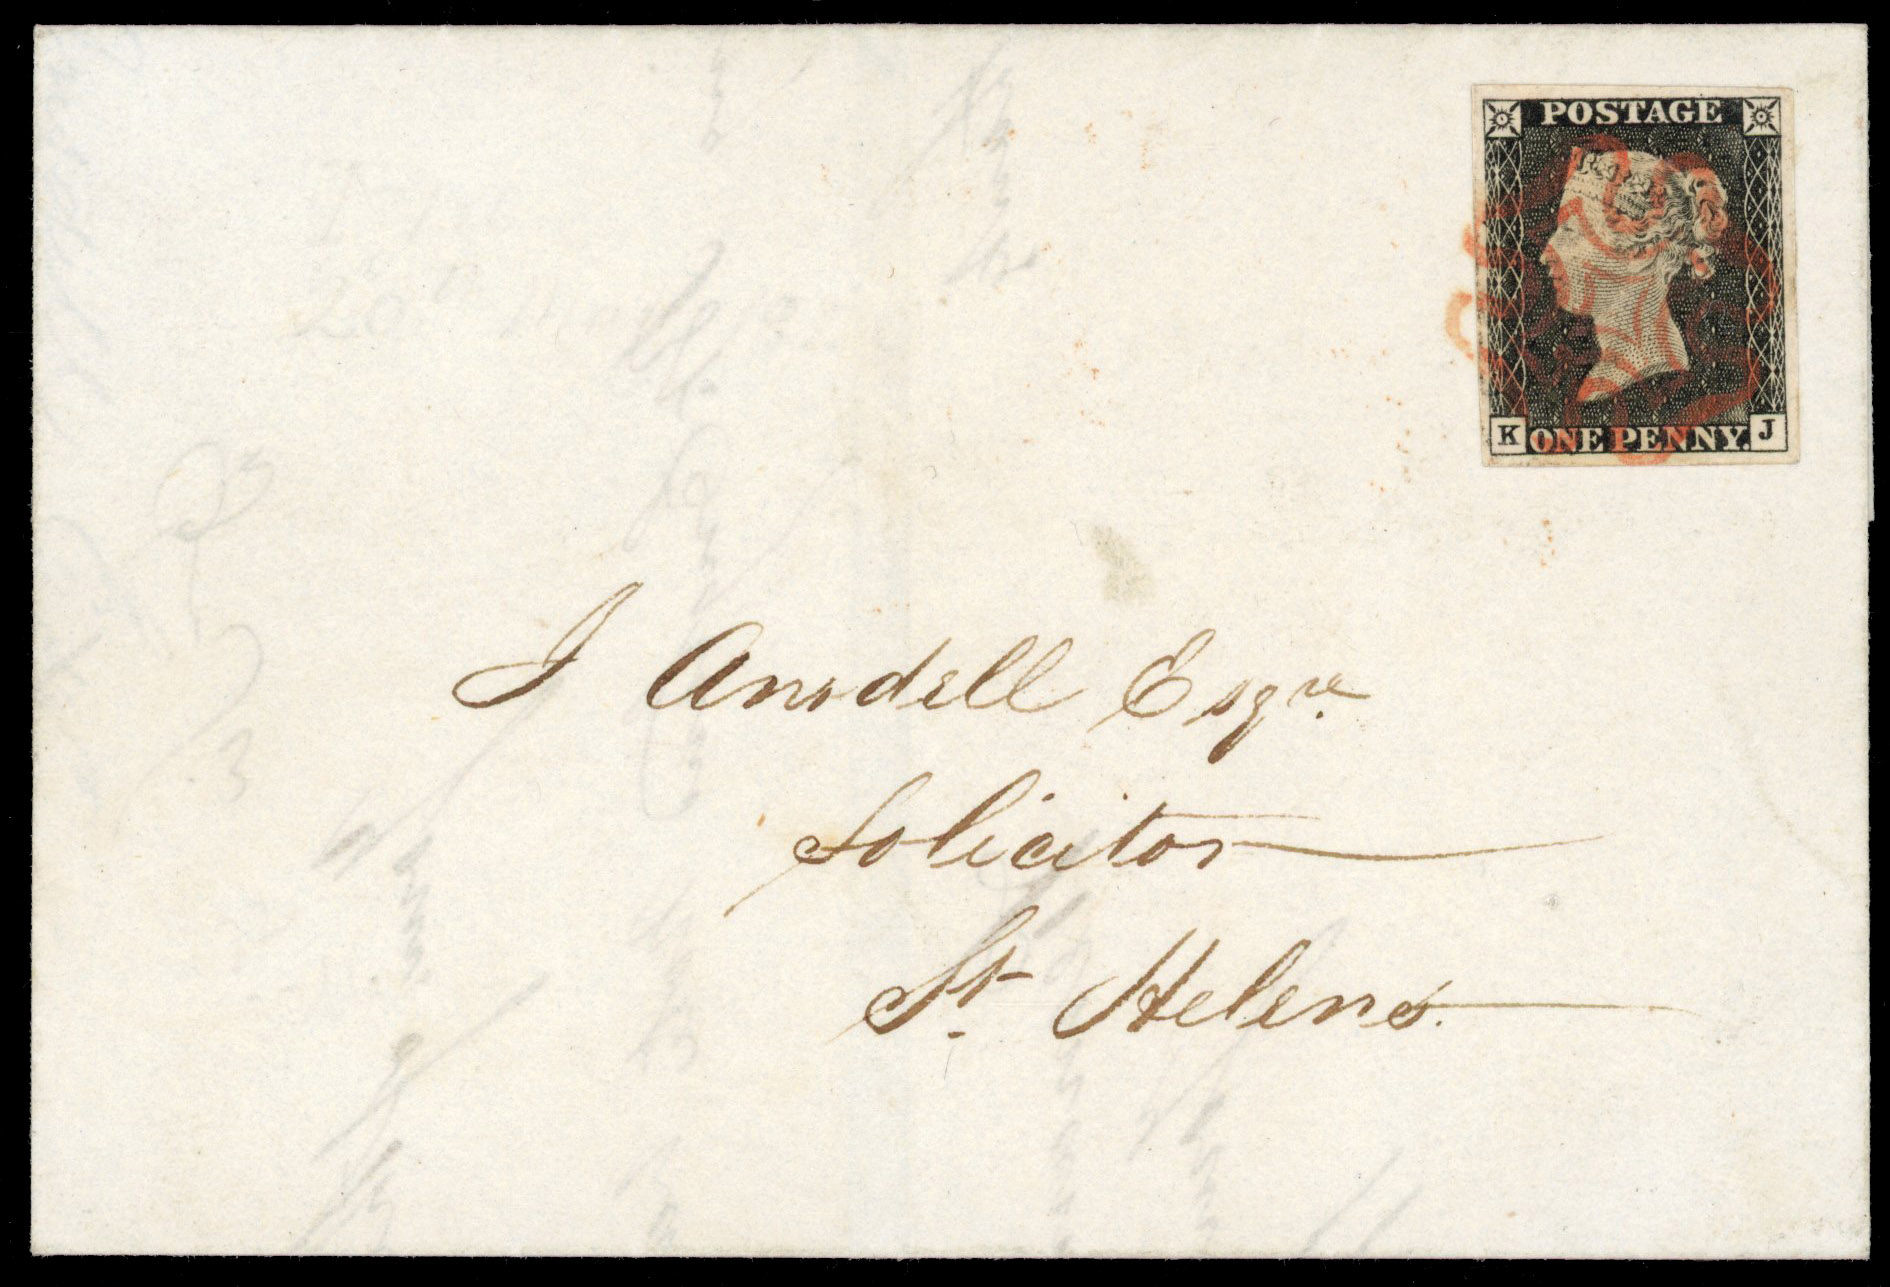 POSTAGE
K ONE PENNY. J
J Ansdell Esqre.
Solicitor
St. Helens.